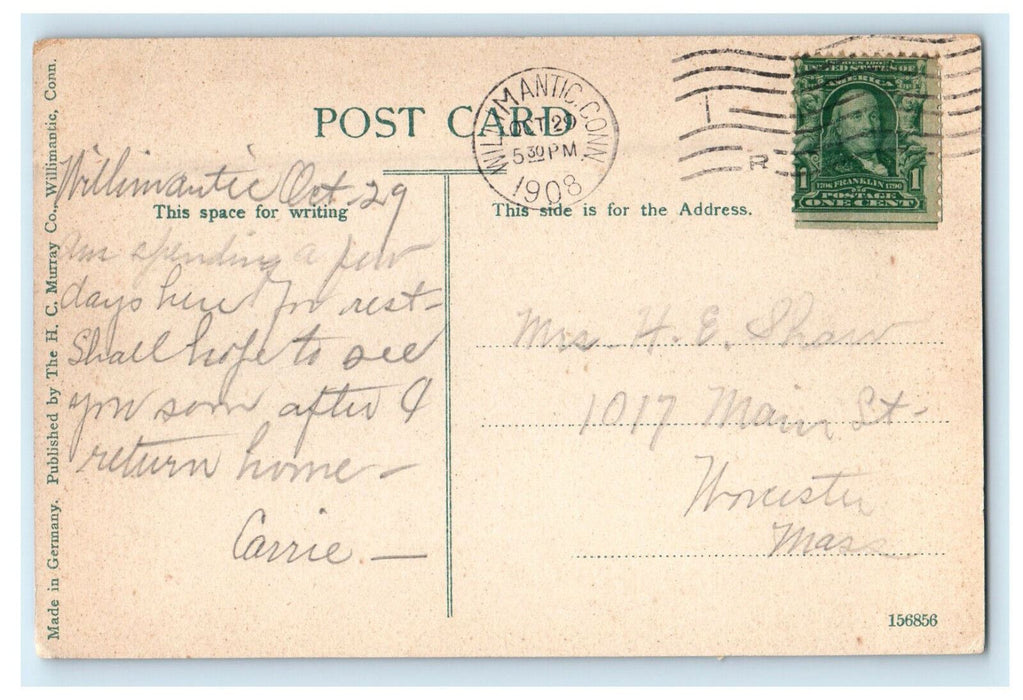 POST CARD
WILLIMANTIC, CONN.
OCT 29
5 30 PM
1908
R
SERIES 1902
UNITED STATES OF
AMERICA
1706 FRANKLIN 1790
1 1
POSTAGE
ONE CENT
Made in Germany. Published by The H. C. Murray Co., Willimantic, Conn.
This space for writing
Willimantic Oct-29
Am spending a few
days here for rest-
Shall hope to see
you soon after I
return home-
Carrie.-
This side is for the Address.
Mrs. H. E. Shaw
1017 Main St-
Worcester
Mass
156856